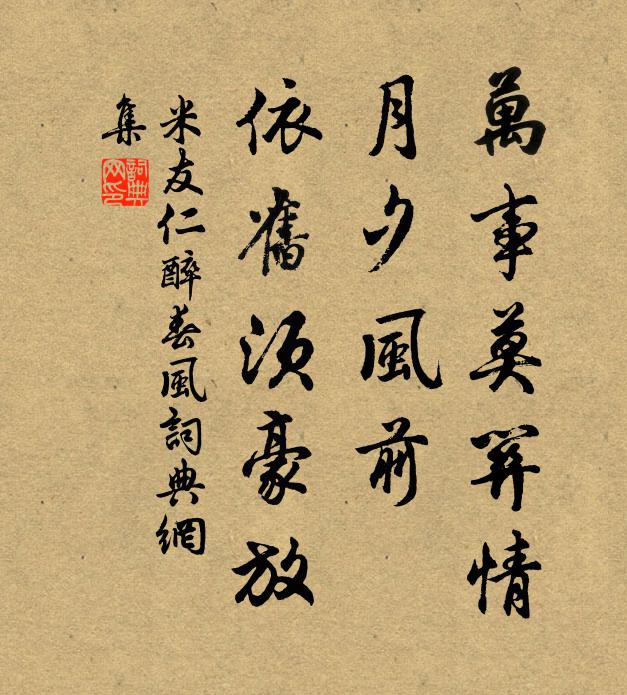 萬事莫關情
月夕風前
依舊須豪放
米友仁醉春風詞典網
集
詞典
网印